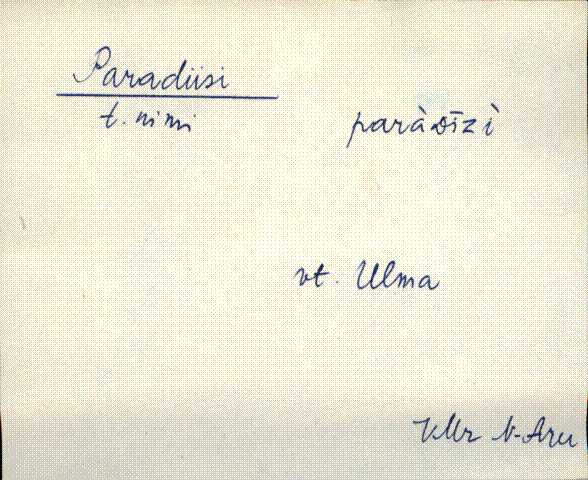 Paradiisi
t. nimi
paràᴅīzì
vt. Ulma
VMr V-Aru